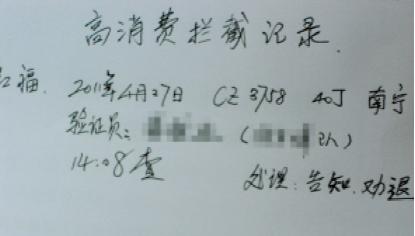 高消费拦截记录.
福. 2011年4月27日 CZ 3758 40J 南宁
验证员:
14:08查
处理: 告知.劝退